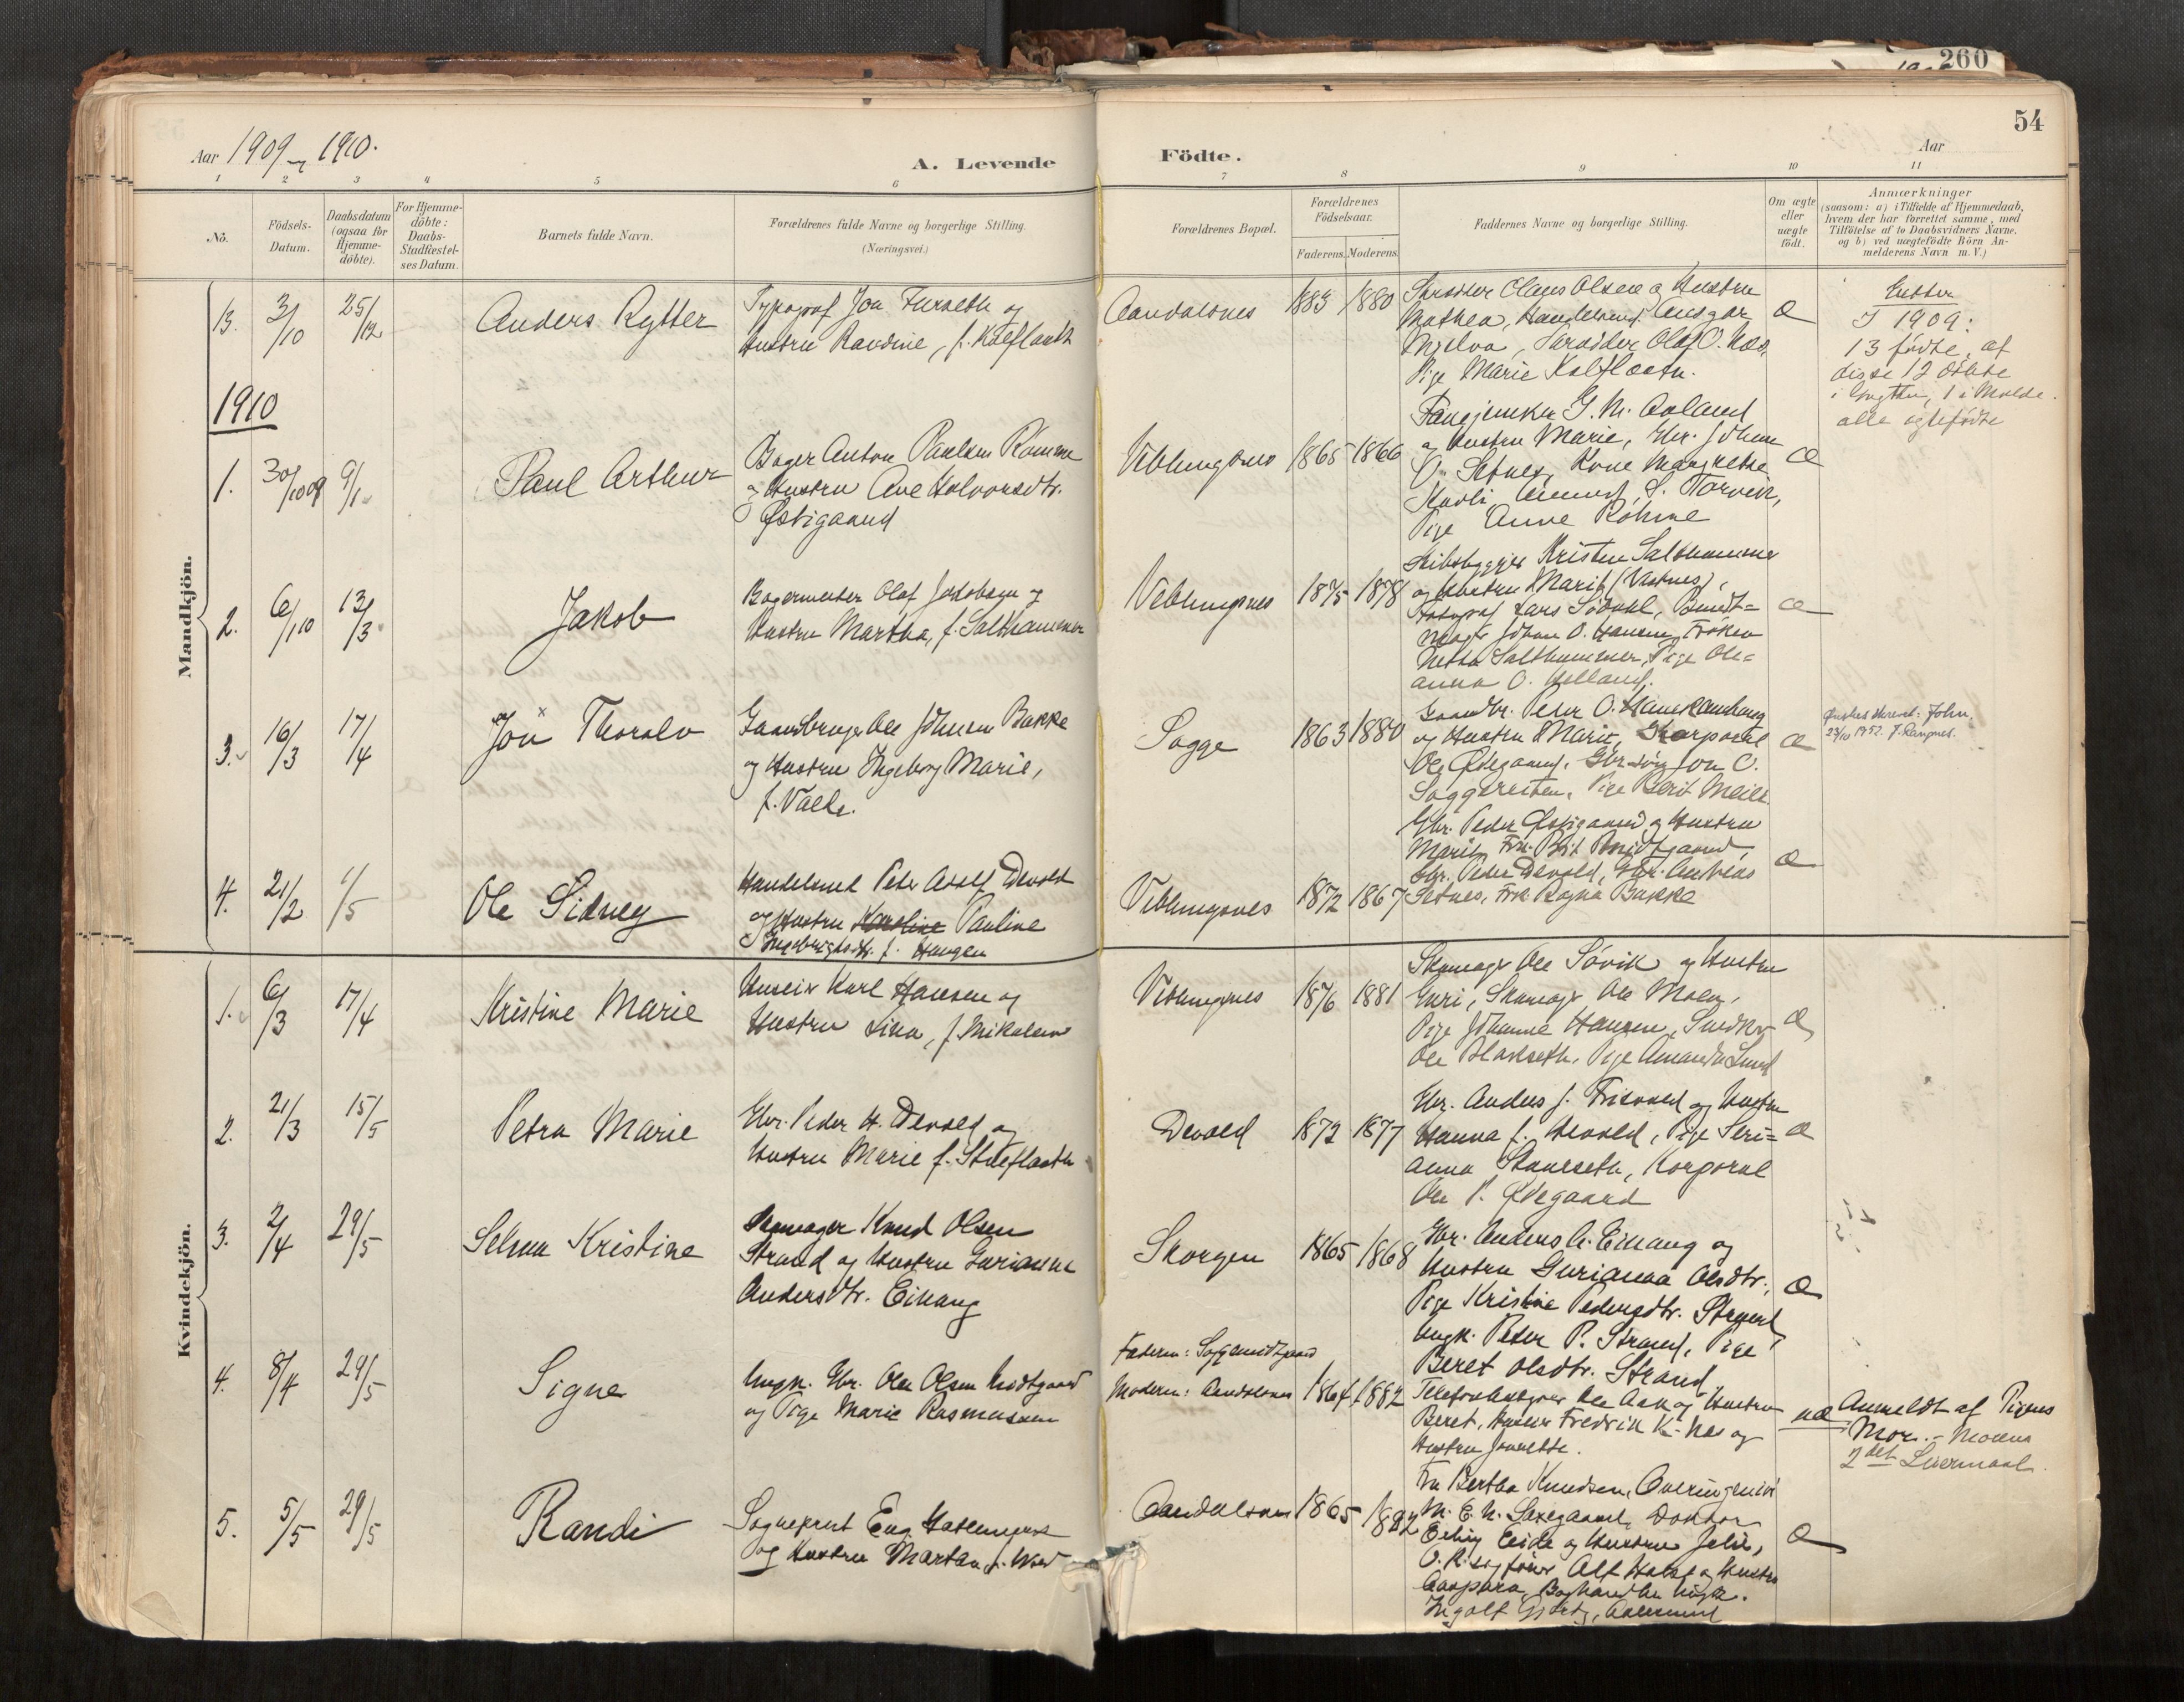 260
54
Aar 1909 og 1910.
A. Levende
Födte.
Aar
1 2 3 4 5 6 7 8 9 10 11
No.
Födsels-
Datum.
Daabsdatum
(ogsaa for
Hjemme-
döbte).
For Hjemme-
döbte:
Daabs-
Stadfæstel-
ses Datum.
Barnets fulde Navn.
Forældrenes fulde Navne og borgerlige Stilling.
(Næringsvei.)
Forældrenes Bopæl.
Forældrenes
Födselsaar.
Faderens. Moderens.
Faddernes Navne og borgerlige Stilling.
Om ægte
eller
uægte
födt.
Anmærkninger
(saasom: a) i Tilfælde af Hjemmedaab,
hvem der har forrettet samme, med
Tilföielse af to Daabsvidners Navne,
og b) ved uægtefödte Börn An-
melderens Navn m. V.)
Mandkjön.
13. 3/10 25/12
Anders Rytter
Typograf Jon Furseth og
Hustru Randine, f.
Aandalsnes
1883 1880
Skrædder Claus Olsen og Hustru
Mathea, Ansgar
Mjelva, Skrædder Olaf O. Næs,
Pige Marie Kalflaatn.
æ
I 1909:
13 fødte, af
disse 12 døbte
i Grytten, 1 i Molde.
alle ægtefødte
1910
1. 30/10 09 9/1
Paul Arthur
Bager Anton Paulsen Romme
og Hustru Ane Halvorsdtr.
Østigaard
Veblungsnes
1865 1866
G. M. Aoland
og Hustru Marie, Gbr. Johan
O. Setnes, Kone Margrethe
S. Torvik,
Pige Anne Röhme
æ
2. 6/1 10 13/3
Jakob
Bagermester Olaf Jakobsen og
Hustru Martha, f. Salthammer
Veblungsnes
1875 1878
Skibsbygger Kristen Salthammer
og Hustru Marit (Vestnes),
Fotograf Lars Södahl, Bundt-
mager Johan O. Hansen, Frøken
Salthammer, Pige Ole-
anna O.
æ
3. 16/3 17/4
Jon Thoralv
Gaardbruger Ole Johnsen Bakke
og Hustru Ingeborg Marie,
f. Valle.
Sogge
1863 1880
Gaardbr. Peder O.
og Hustru Marit, Korporal
Ole Ødegaard, Gbr.søn Jon O.
Pige Berit
æ
Ønskes skrevet: John.
23/10 1952.
4. 21/2 1/5
Ole Sidney
Handelsmd Peter Adolf Devold
og Hustru Karoline Pauline
Ingebrigtsdtr. f. Haugen
Veblungsnes
1872 1867
Gbr. Peder Østigaard og Hustru
Marit, Frk. Brit
Gbr. Peder Devold, Gbr. Andreas
Setnes, Frk. Ragna Bakke
æ
Kvindekjön.
1. 6/3 17/4
Kristine Marie
Huseier Karl Hansen og
Hustru Lina, f. Mikalsen
Veblungsnes
1876 1881
Skomager Ole Søvik og Hustru
Guri, Skomager Ole Moen,
Pige Johanne Hansen, Snedker
Ole Blakseth, Pige Amanda Lund
æ
2. 21/3 15/5
Petra Marie
Gbr. Peder H. Devold og
Hustru Marie f. Stueflaatn
Devold
1872 1877
Gbr. Anders J. Frisvold og Hustru
Hanna f. Devold, Pige Seri-
anna Skaseth, Korporal
Ole P. Ødegaard
æ
3. 2/4 29/5
Selma Kristine
Skomager Knud Olsen
Strand og Hustru Gurianna
Andersdtr. Eikang
Skorgen
1865 1868
Gbr. Anders A. Eikang og
Hustru Gurianna Olsdtr.,
Pige Kristine Pedersdtr. Strand,
Ungk. Peter P. Strand, Pige
Beret Olsdtr. Strand
æ
4. 8/4 29/5
Signe
Ungk. Gbr. Ole Olsen Midtgaard
og Pige Marie Rasmussen
Faderen: Soggemidtgaard
Moderen: Aandalsnes
1864 1882
Ole Aak og Hustru
Beret, Huseier Fredrik K. Næs og
Hustru
uæ
Anmeldt af Pigens
Mor. - Moders
2det Leiermaal.
5. 5/5 29/5
Randi
Sogneprest Eug.
og Hustru Martha f.
Aandalsnes
1865 1882
Fru Bertha Knudsen, Overingeniør
M. E. N. Saxegaard, Doktor
Erling Eide og Hustru Julie,
O.R.sagfører Alf og Hustru
Caspara, Boghandler Ungk.
Ingolf Aalesund
æ